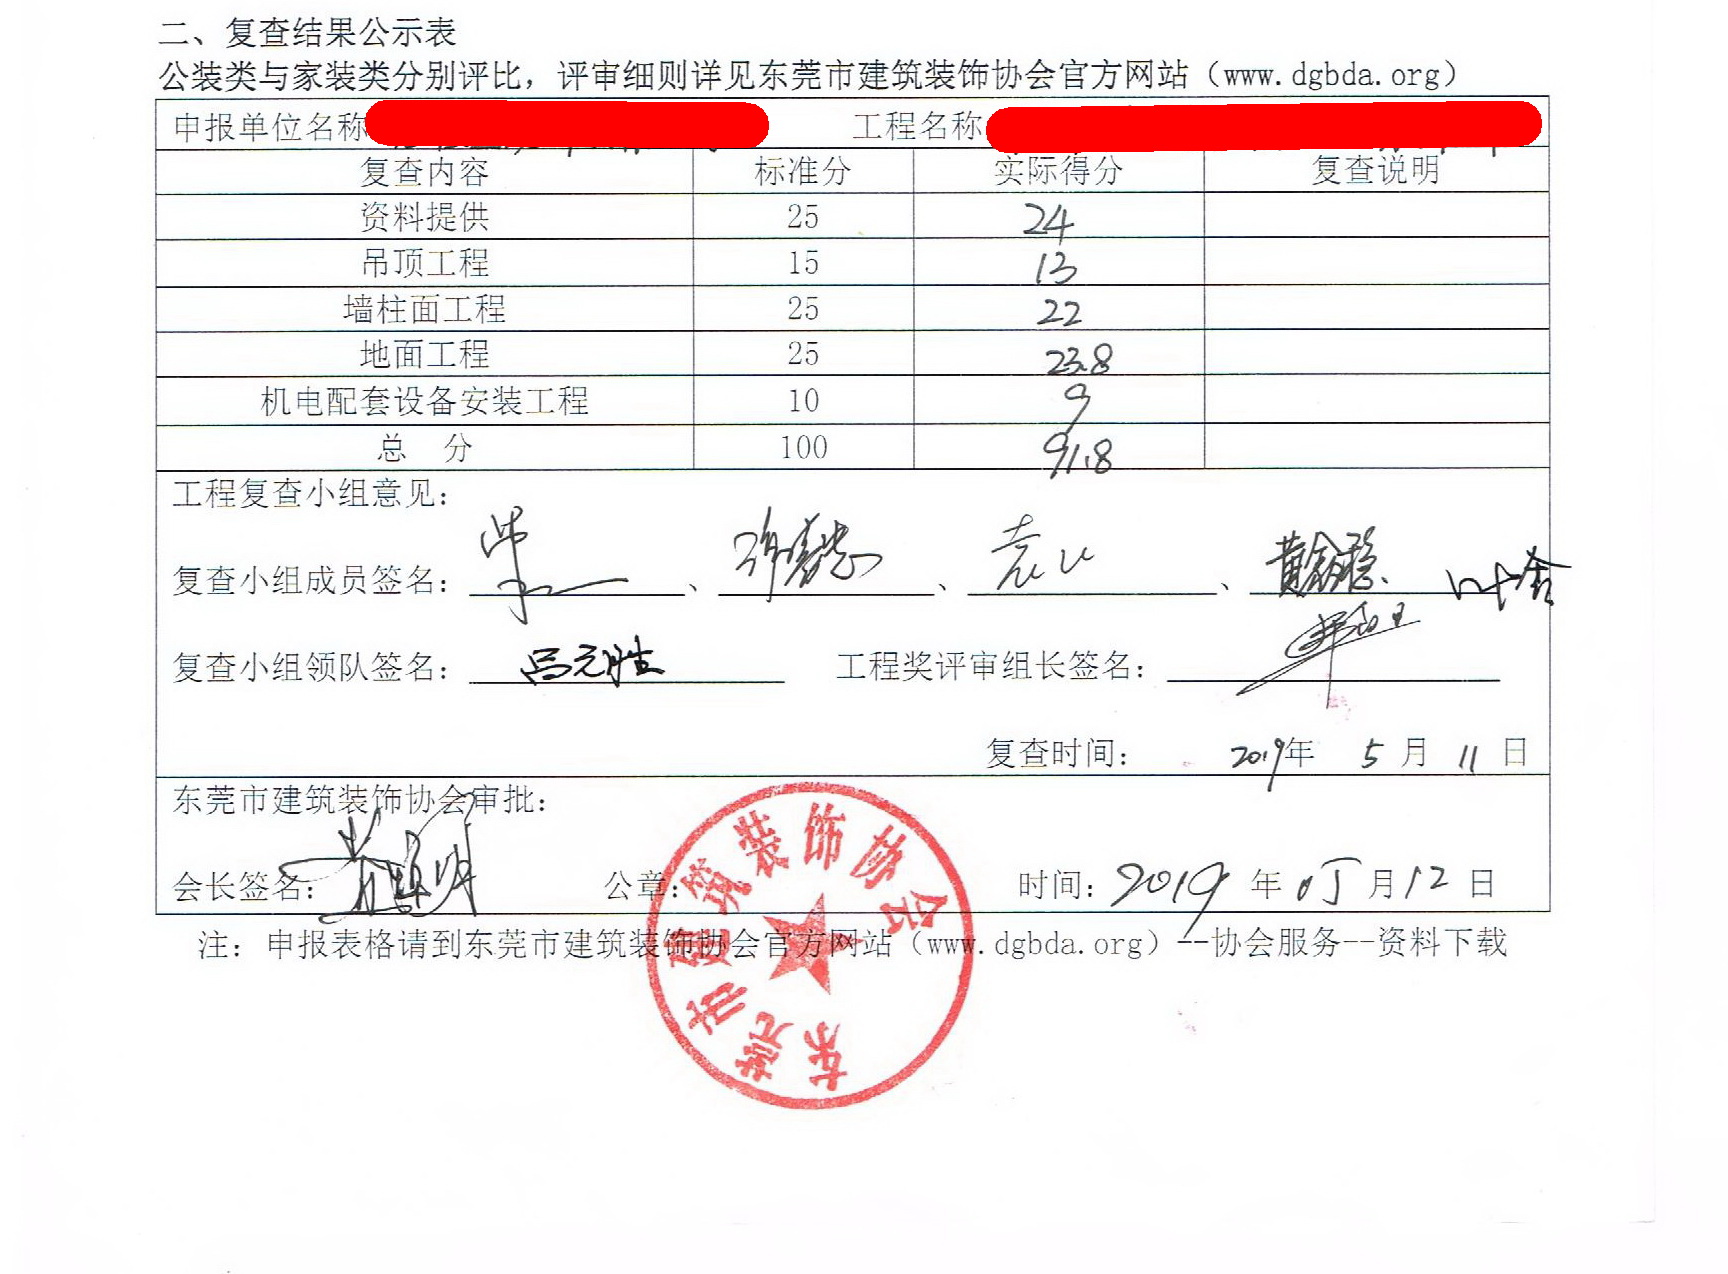 二、复查结果公示表
公装类与家装类分别评比，评审细则详见东莞市建筑装饰协会官方网站（www.dgbda.org）
申报单位名称 工程名称
复查内容 标准分 实际得分 复查说明
资料提供 25 24
吊顶工程 15 13
墙柱面工程 25 22
地面工程 25 23.8
机电配套设备安装工程 10 9
总 分 100 91.8
工程复查小组意见：
复查小组成员签名： 、 、 、
复查小组领队签名：吕元胜 工程奖评审组长签名：
复查时间： 2019年 5 月 11 日
东莞市建筑装饰协会审批：
会长签名： 公章： 时间：2019 年 05 月 12 日
东莞市建筑装饰协会
注：申报表格请到东莞市建筑装饰协会官方网站（www.dgbda.org）--协会服务--资料下载